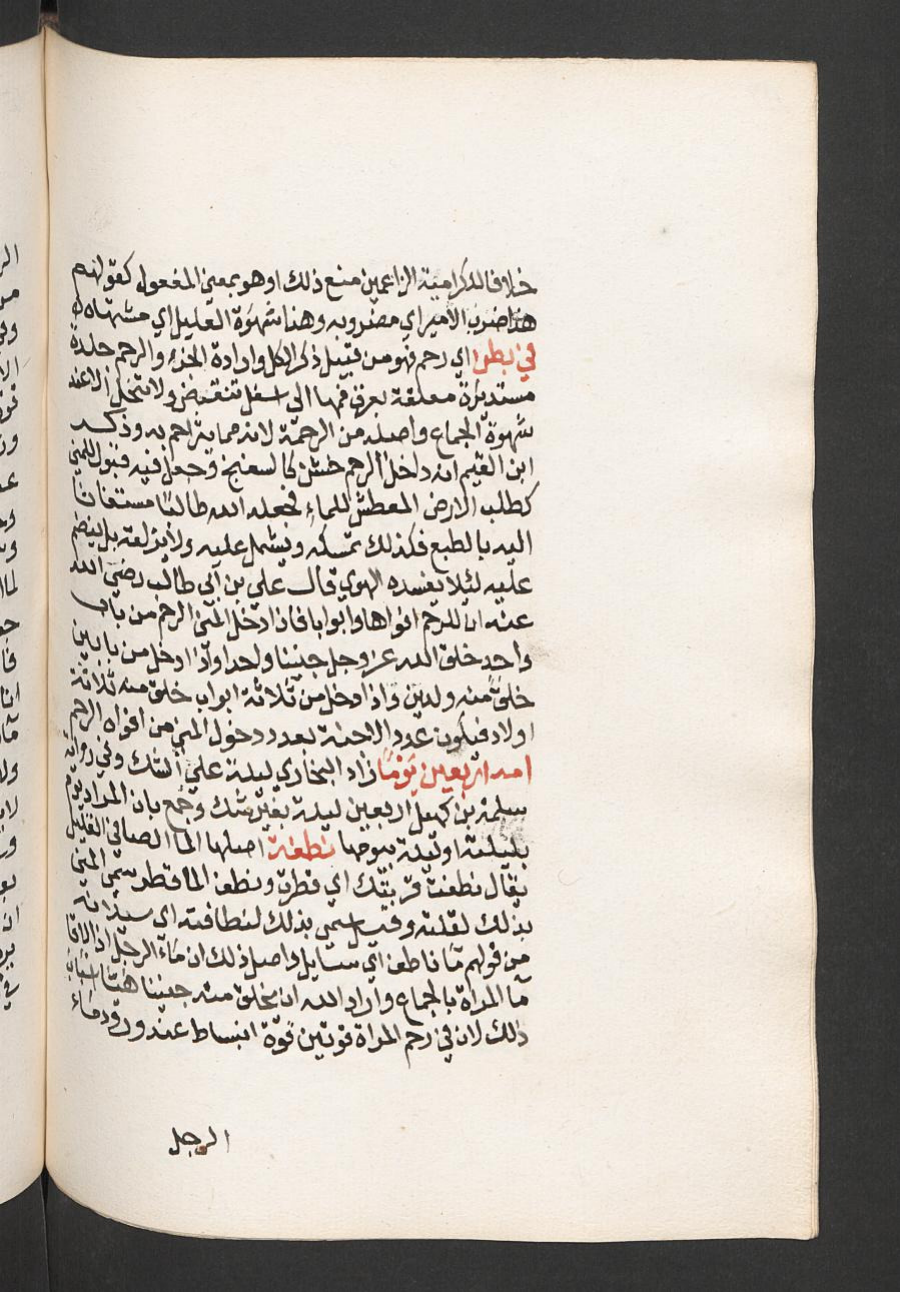 خلافا للكرامية الزاعمين منع ذلك او هو بمعني المفعول كقولهم
هذا ضرب الأمير اي مضروبه وهنا شهوة العليل اي مشتهاه
في بطن اي رحم فهو من قبيل ذكر الكل وارادة الجزء والرحم جلدة
مستديرة معلقة بعرق فمها الي اسفل تنقبض ولا تنحل الا عند
شهوة الجماع واصله من الرحمة لانه مما يتراحم به وذكر
ابن القيم ان داخل الرحم خشن كالسفنج وجعل فيه قبول للمني
كطلب الارض العطش للماء فجعله الله طالبا مستقا
اليه بالطبع فكذلك تمسكه وتشمل عليه ولا تزلقه بل ينضم
عليه ليلا يفسده الهوي قال علي بن أبي طالب رضي الله
عنه ان للرحم افواها وابوابا فاذا دخل المني الرحم من باب
واحد خلق الله عز وجل جنينا واحدا واذا دخل من بابين
خلق منه ولدين واذا دخل من ثلاثة ابواب خلق منه ثلاثة
اولاد فيكون عدد الاجنة بعدد دخول المني من افواه الرحم
امه اربعين يوما زاد البخاري ليلة علي الشك وفي رواية
سلمة بن كهيل اربعين ليلة بغير شك وجمع بان المراد يوم
بليلته او ليلة بيومها نطفة اصلها الما الصافي القليل
يقال نطفت قربتك اي قطرت ونطف الما قطر سمي المني
بذلك لقلته وقيل سمي بذلك لنطافته اي سيلانه
من قولهم مآ ناطف اي سايل واصل ذلك ان مآء الرجل اذا لاقا
مآ المراة بالجماع واراد الله ان يخلق منه جنينا هيأ اسباب
ذلك لان في رحم المراة قوتين قوة انبساط عند ورود مآء
الرجل